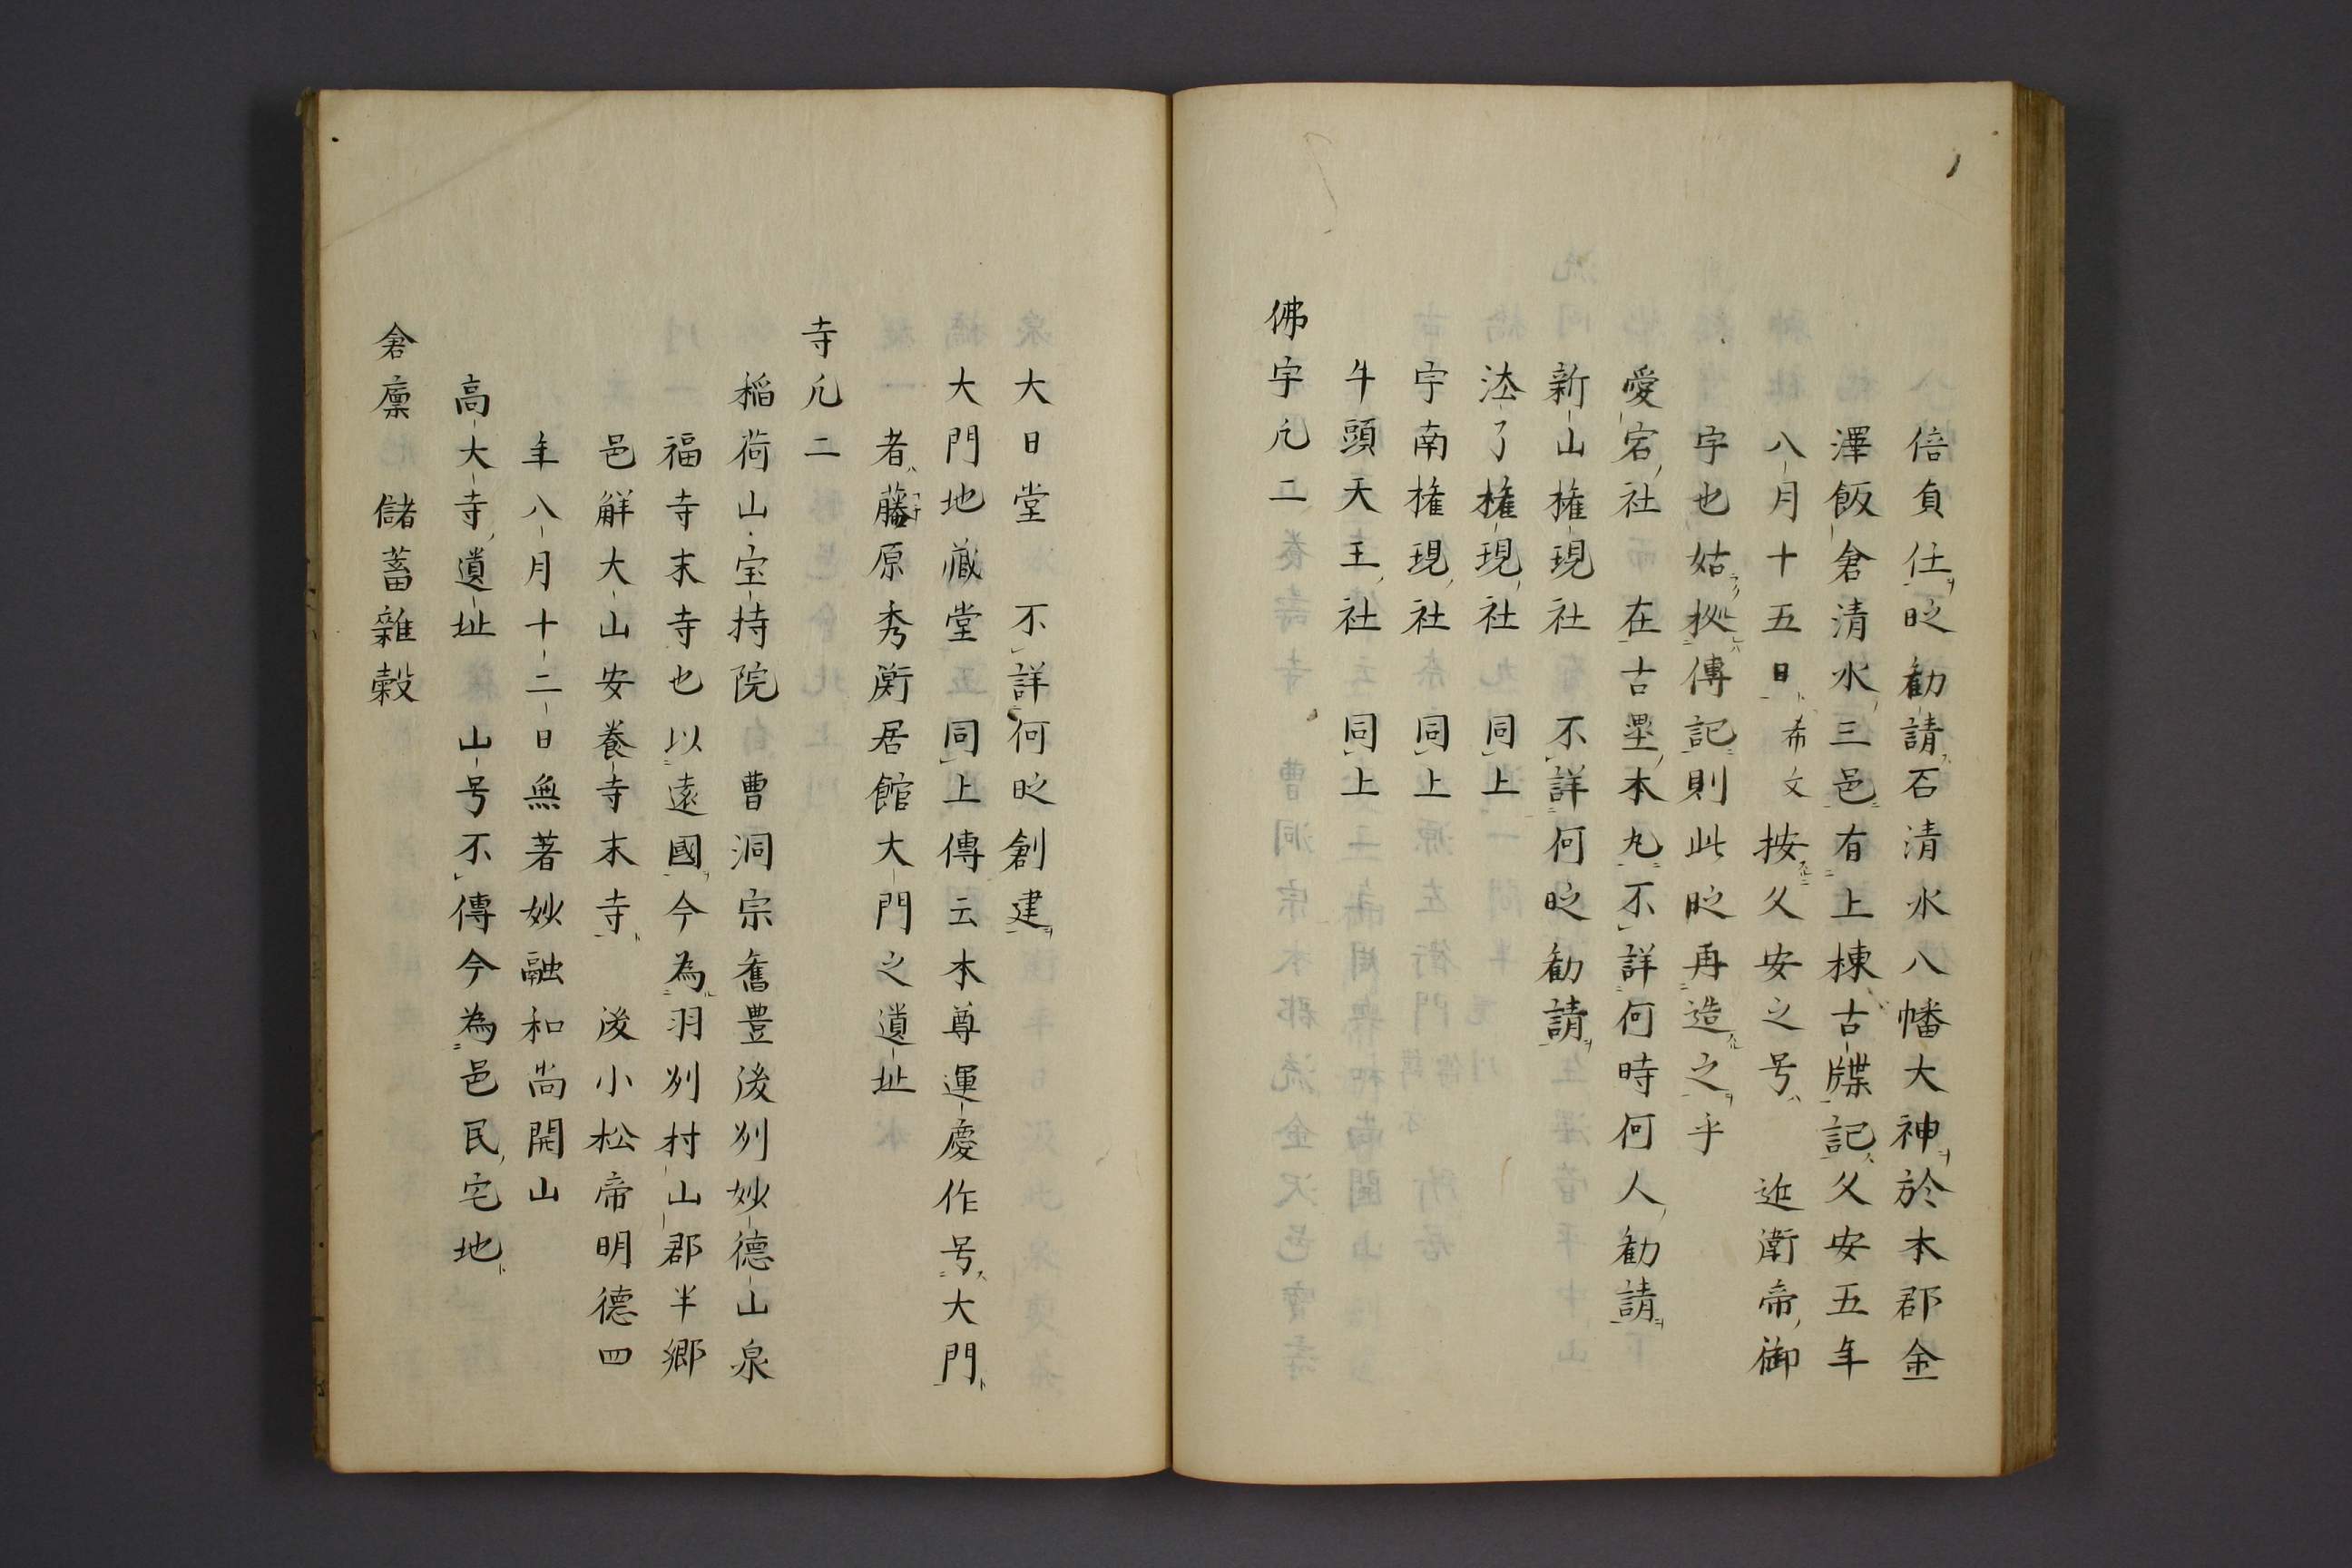 倍貞任昵勧請石清水八幡大神於本郡金
澤飯倉清水三邑有上棟古牒記久安五年
八月十五日希文 按久安之号 近衛帝御
宇也姑拠傳記則此昵再造之乎
愛宕社 在古塁本丸不詳何時何人勧請
新山権現社 不詳何昵勧請
法了権現社 同上
宇南権現社 同上
牛頭天王社 同上
佛宇凡二
大日堂 不詳何昵創建
大門地蔵堂 同上傳云本尊運慶作号大門
者藤原秀衡居館大門之遺址
寺凡二
稲荷山宝持院 曹洞宗舊豊後州妙德山泉
福寺末寺也以遠國今為羽州村山郡半郷
邑觧大山安養寺末寺 後小松帝明德四
年八月十二日無著妙融和尚開山
高大寺遺址 山号不傳今為邑民宅地
倉廩 儲蓄雜穀